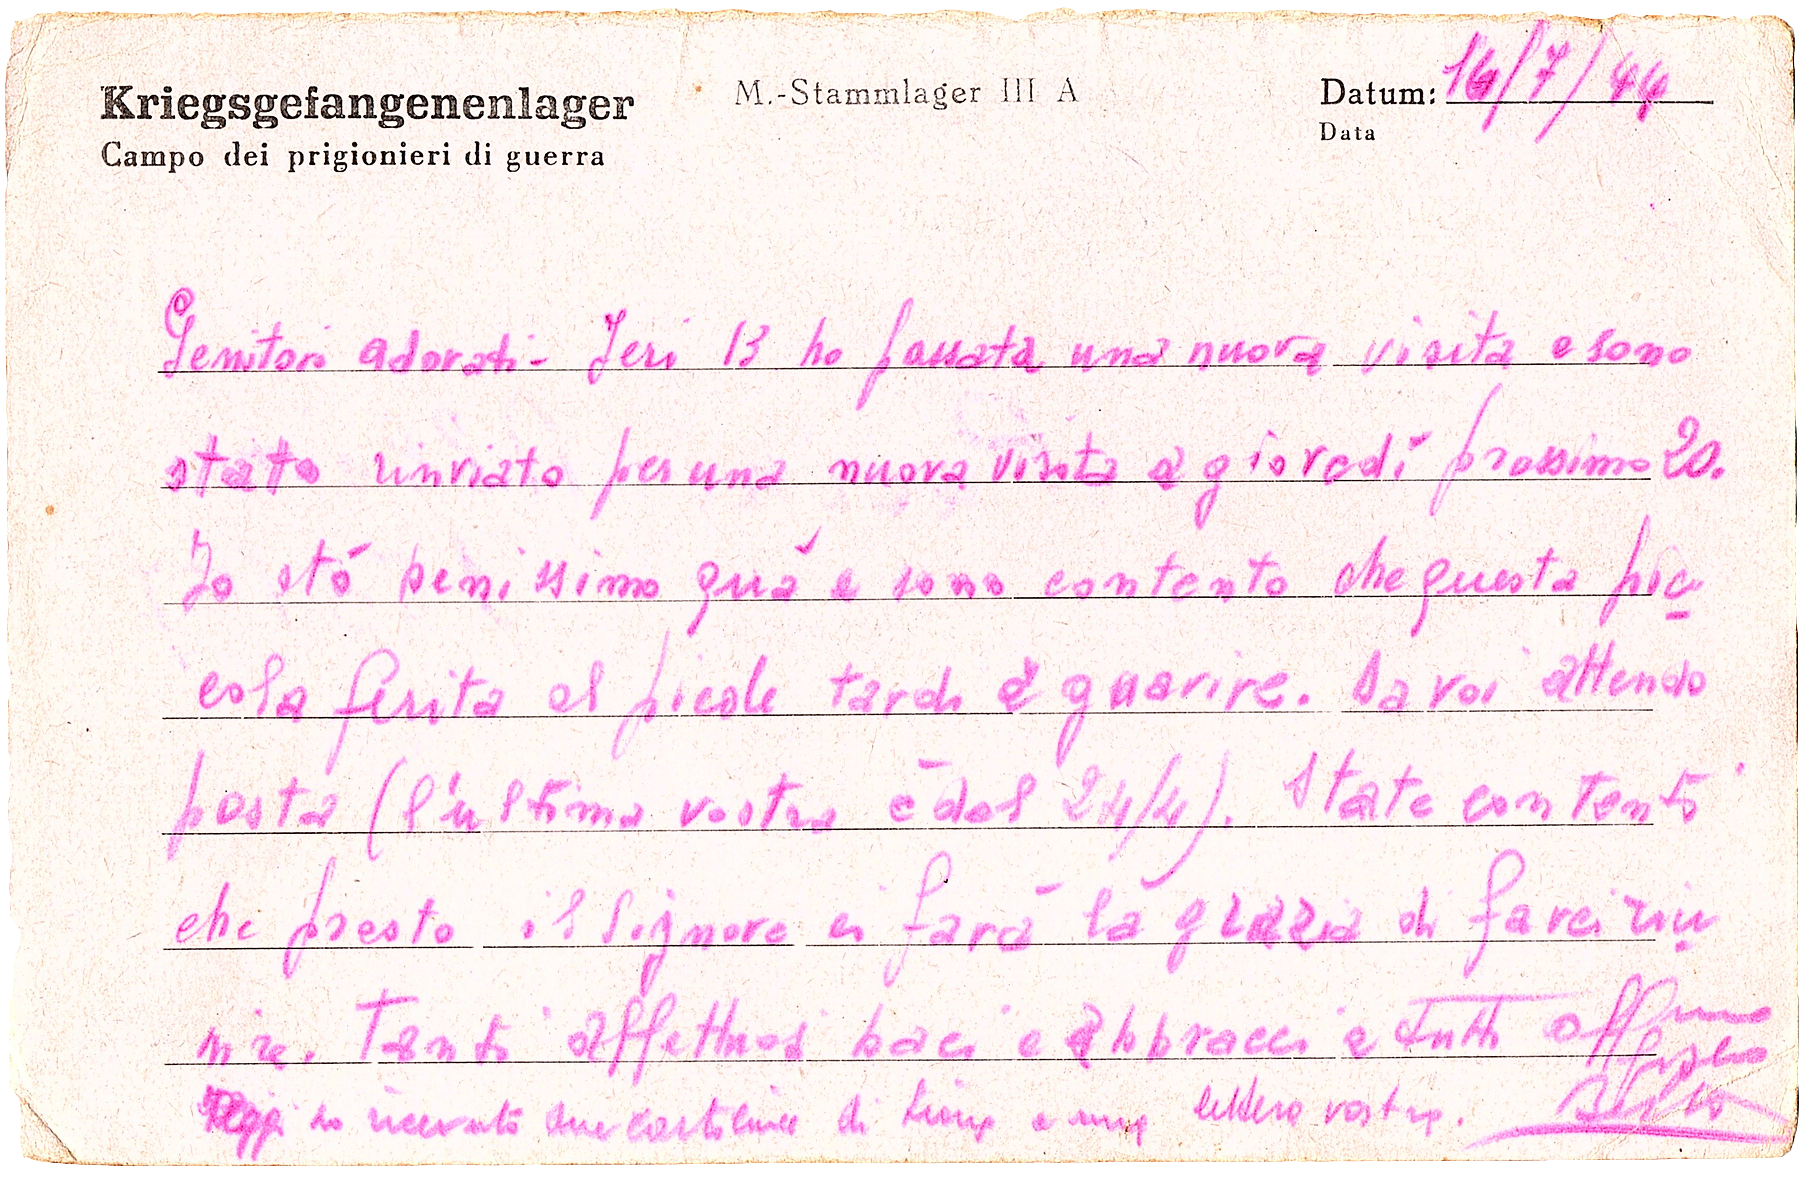 Kriegsgefangenenlager
Campo dei prigionieri di guerra
M.-Stammlager III A
Datum: 14/7/44
Data
Genitori adorati - Jeri 13 ho passata una nuova visita e sono
stato rinviato per una nuova visita a giovedí prossimo 20.
Io stó benissimo quá e sono contento che questa pic-
cola ferita al piede tardi a guarire. Da voi attendo
posta (l'ultima vostra è del 24/4). State contenti
che presto il Signore ci farà la grazia di farci riu-
nire. Tanti affettuosi baci e abbracci a tutti aff.mo
figlio
Oggi ho ricevuto due cartoline di e una lettera vostra.